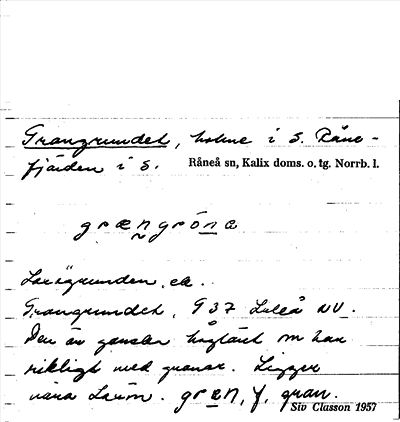 Grangrundet, holme i S. Råne-
fjärden i S. Råneå sn, Kalix doms. o. tg. Norrb. l.
grængróna
Laxögrunden, ek.
Grangrundet, 937 Luleå NV.
Den är ganska höglänt m han
rikligt med granar. Ligger
nära Laxön. græn, f, gran.
Siv Classon 1957